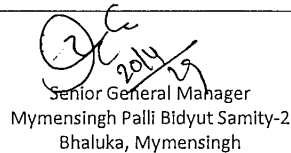 20/4/29
Senior General Manager
Mymensingh Palli Bidyut Samity-2
Bhaluka, Mymensingh